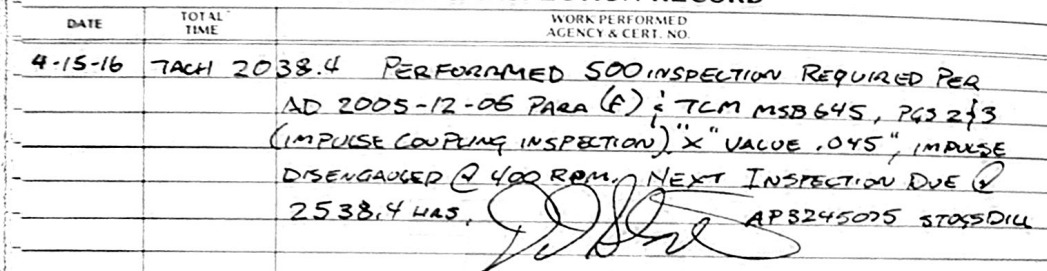 INSPECTION RECORD
DATE TOTAL TIME WORK PERFORMED AGENCY & CERT. NO.
4-15-16 TACH 2038.4 PERFORMED 500 INSPECTION REQUIRED PER
AD 2005-12-06 PARA (F) & TCM MSB645, PGS 2&3
(IMPULSE COUPLING INSPECTION) "X" VALUE .045", IMPULSE
DISENGAUGED @ 400 RPM. NEXT INSPECTION DUE @
2538.4 HRS. AP3245075 STOGSDILL